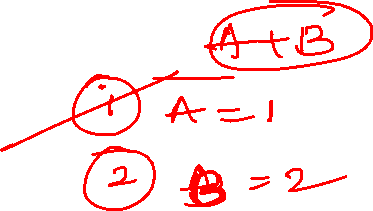 A+B
1 A = 1
2 B = 2